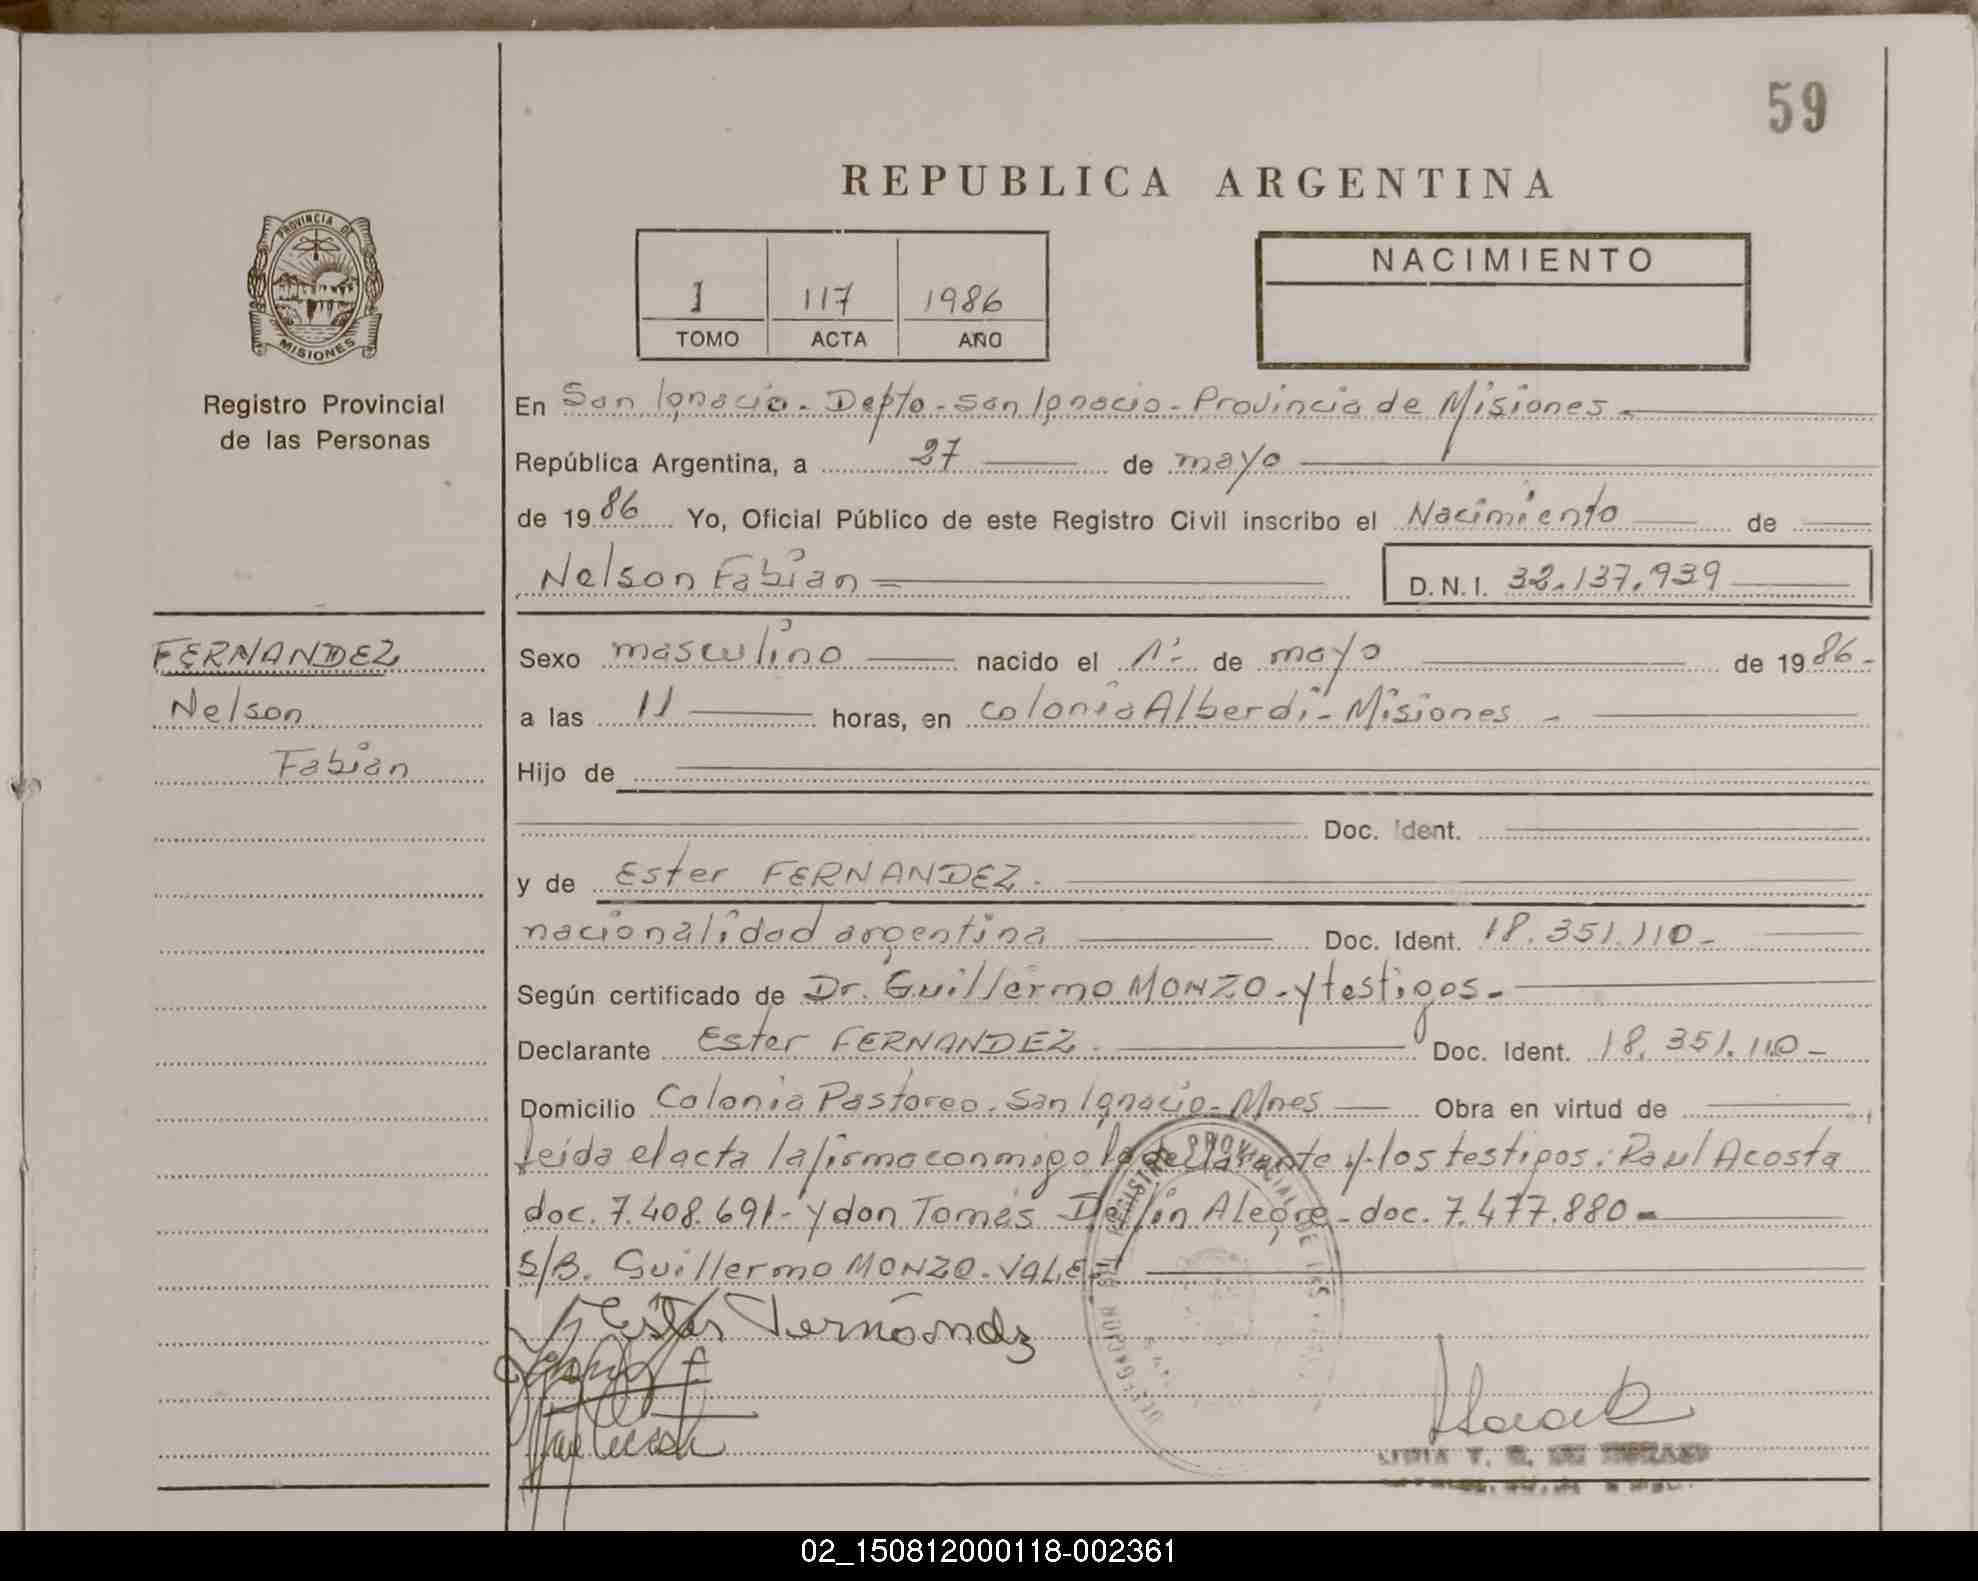 59
REPUBLICA ARGENTINA
PROVINCIA DE
MISIONES
Registro Provincial
de las Personas
1 117 1986
TOMO ACTA AÑO
NACIMIENTO
En San Ignacio - Depto - San Ignacio - Provincia de Misiones -
República Argentina, a 27 de mayo
de 1986 Yo, Oficial Público de este Registro Civil inscribo el Nacimiento de
Nelson Fabián D.N.I. 32.137.939
FERNANDEZ
Nelson
Fabián
Sexo masculino nacido el 1º de mayo de 1986-
a las 11 horas, en colonia Alberdi - Misiones -
Hijo de
Doc. Ident.
y de Ester FERNANDEZ.
nacionalidad argentina Doc. Ident. 18.351.110-
Según certificado de Dr. Guillermo MONZO - y testigos -
Declarante Ester FERNANDEZ. Doc. Ident. 18.351.110-
Domicilio Colonia Pastoreo. San Ignacio - Mnes Obra en virtud de
leida el acta la firma conmigo la declarante y los testigos: Raul Acosta
doc. 7.408.691 - y don Tomás Delfín Alegre - doc. 7.477.880 -
S/B. Guillermo MONZO. VALE
Ester Fernández
02_150812000118-002361